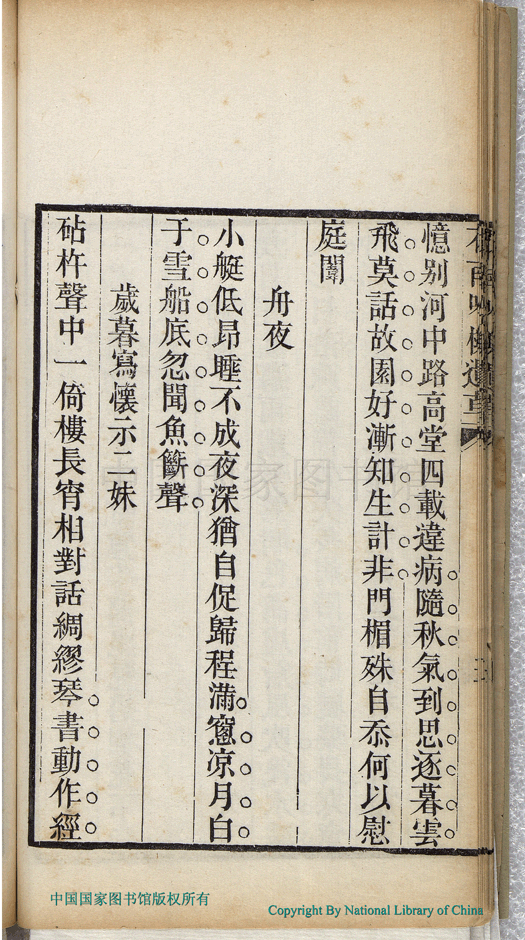 憶别河中路高堂四載違病隨秋氣到思逐暮雲
飛莫話故園好漸知生計非門楣殊自忝何以慰
庭闈
舟夜
小艇低昂睡不成夜深猶自促歸程滿窻凉月白
于雪船底忽聞魚籪聲
歲暮寫懷示二妹
砧杵聲中一倚樓長宵相對話綢繆琴書動作經
中国国家图书馆版权所有
Copyright By National Library of China